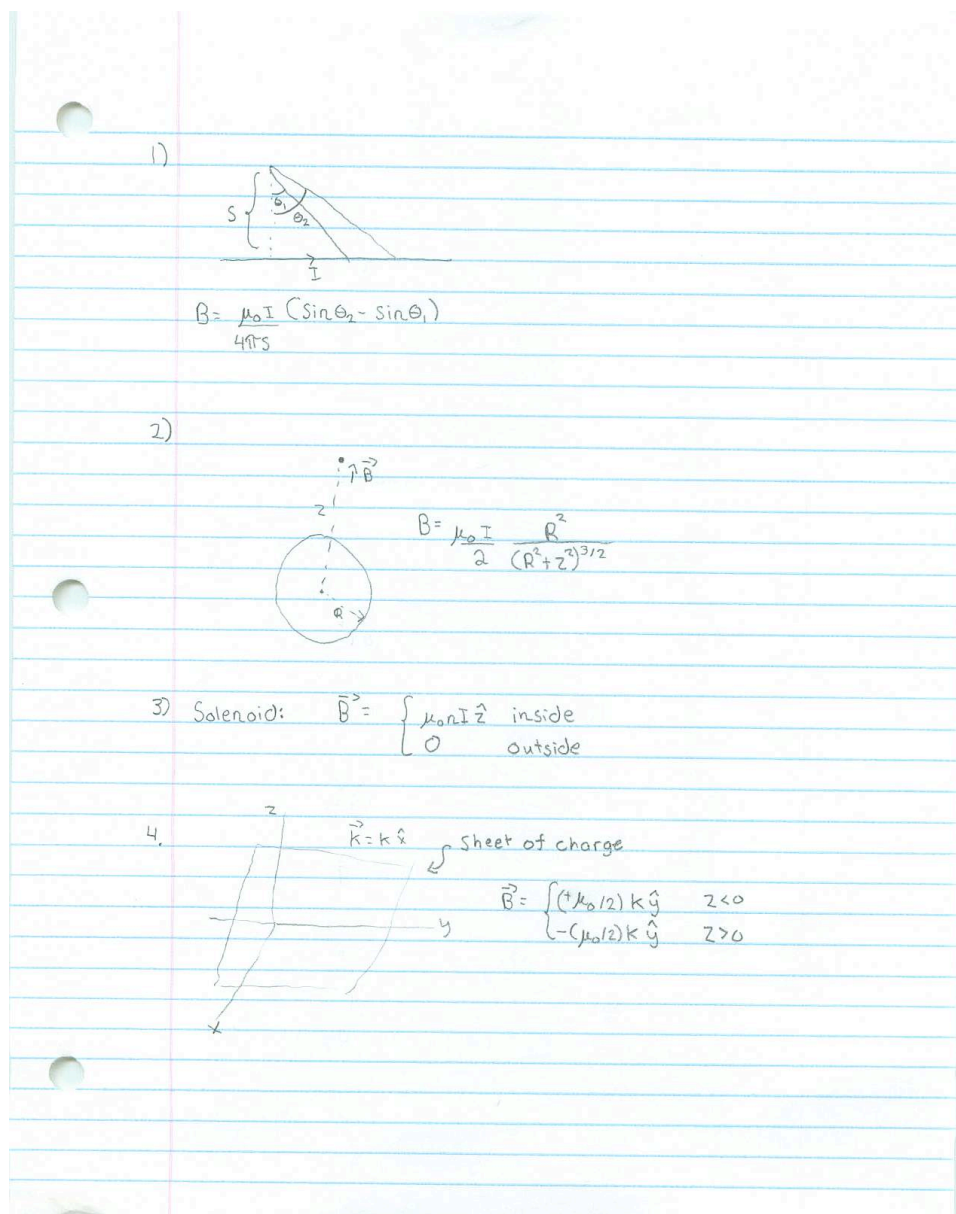 1)
S
θ₁
θ₂
I
B = μ₀I (Sinθ₂ - sinθ₁)
4πS
2)
B⃗
z
B = μ₀I R²
2 (R²+z²)^3/2
R
3) Solenoid: B⃗ = { μ₀nI ẑ inside
0 outside
z
4. K⃗ = K x̂ sheet of charge
B⃗ = { (+μ₀/2) K ŷ z<0
-(μ₀/2) K ŷ z>0
y
x